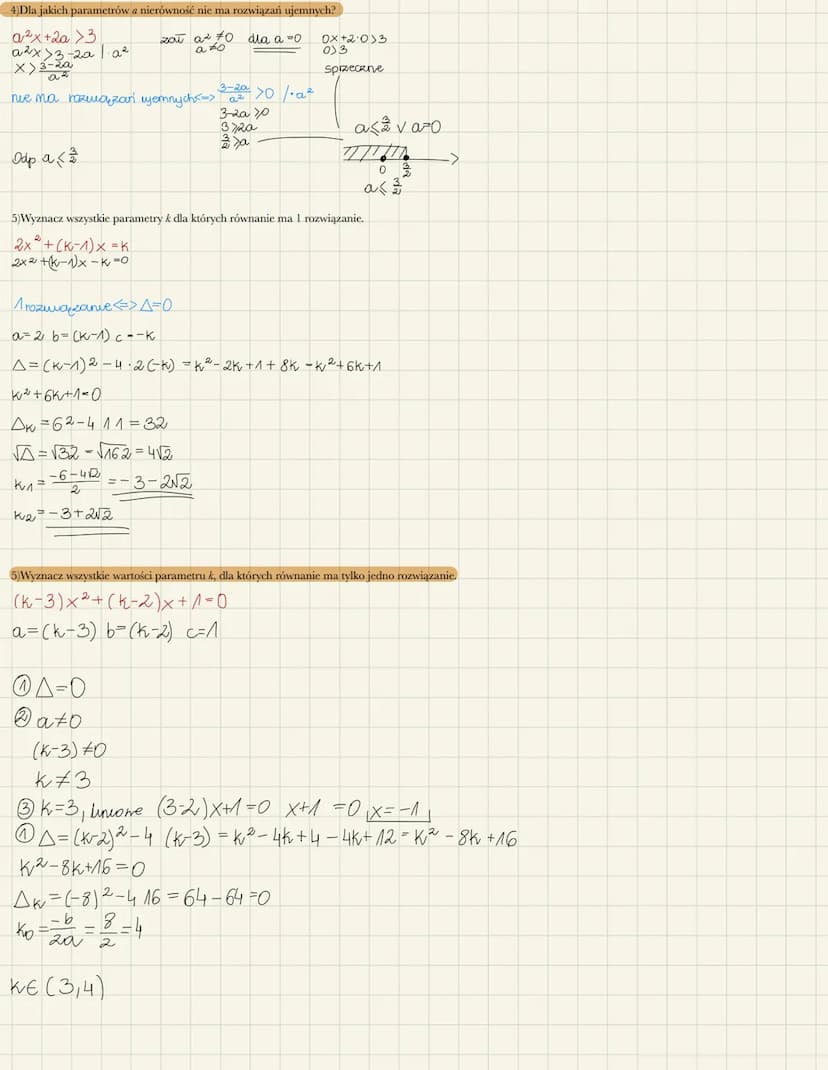 4)Dla jakich parametrów a nierówność nie ma rozwiązań ujemnych?
a²x+2a>3 zał a²≠0 dla a=0 0x+2·0>3
a²x>3-2a |·a² a≠0 0>3
x>\frac{3-2a}{a²} sprzeczne
nie ma rozwiązań ujemnych<=> \frac{3-2a}{a²}>0 /·a²
3-2a⩾0
3⩾2a a⩽\frac{3}{2} v a=0
\frac{3}{2}⩾a
Odp a⩽\frac{3}{2}
0 \frac{3}{2}
a⩽\frac{3}{2}
5)Wyznacz wszystkie parametry k dla których równanie ma 1 rozwiązanie.
2x²+(k-1)x=k
2x²+(k-1)x-k=0
1 rozwiązanie<=>Δ=0
a=2 b=(k-1) c=-k
Δ=(k-1)²-4·2(-k)=k²-2k+1+8k=k²+6k+1
k²+6k+1=0
Δk=6²-4 1 1=32
√Δ=√32=√16 2=4√2
k1=\frac{-6-4√2}{2}=-3-2√2
k2=-3+2√2
5)Wyznacz wszystkie wartości parametru k, dla których równanie ma tylko jedno rozwiązanie.
(k-3)x²+(k-2)x+1=0
a=(k-3) b=(k-2) c=1
① Δ=0
② a≠0
(k-3)≠0
k≠3
③ k=3, liniowe (3-2)x+1=0 x+1=0 x=-1
① Δ=(k-2)²-4 (k-3)=k²-4k+4-4k+12=k²-8k+16
k²-8k+16=0
Δk=(-8)²-4 16=64-64=0
k0=\frac{-b}{2a}=\frac{8}{2}=4
k∈(3,4)